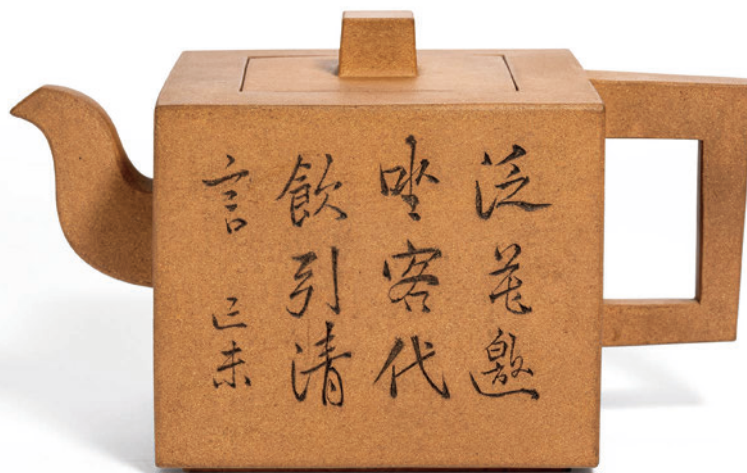 泛花邀
坐客代
飲引清
言 己未